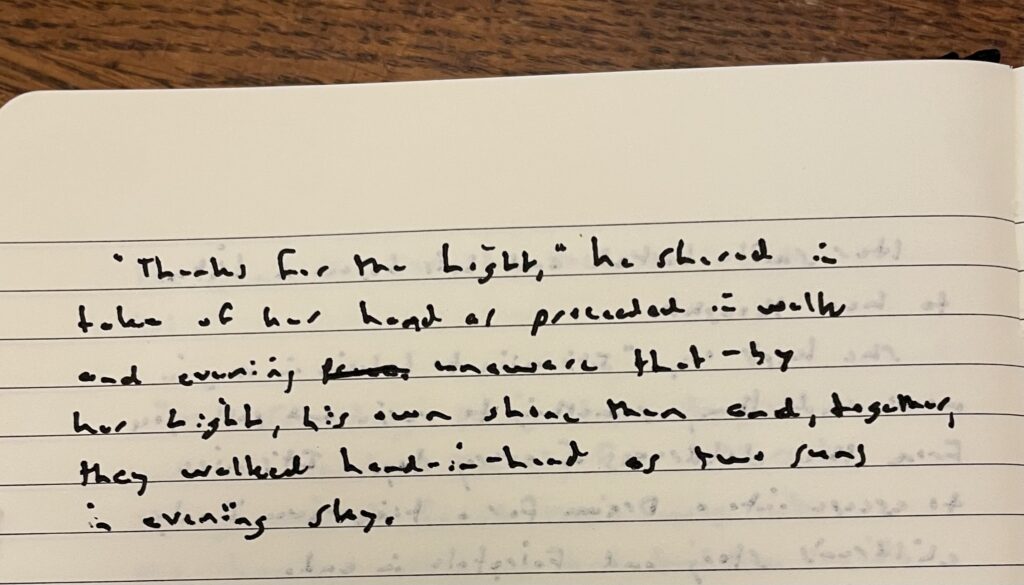 "Thanks for the Light," he shared in
take of her hand as proceeded in walk
and evening unaware that - by
her Light, his own shone then and, together,
they walked hand-in-hand as two suns
in evening sky.